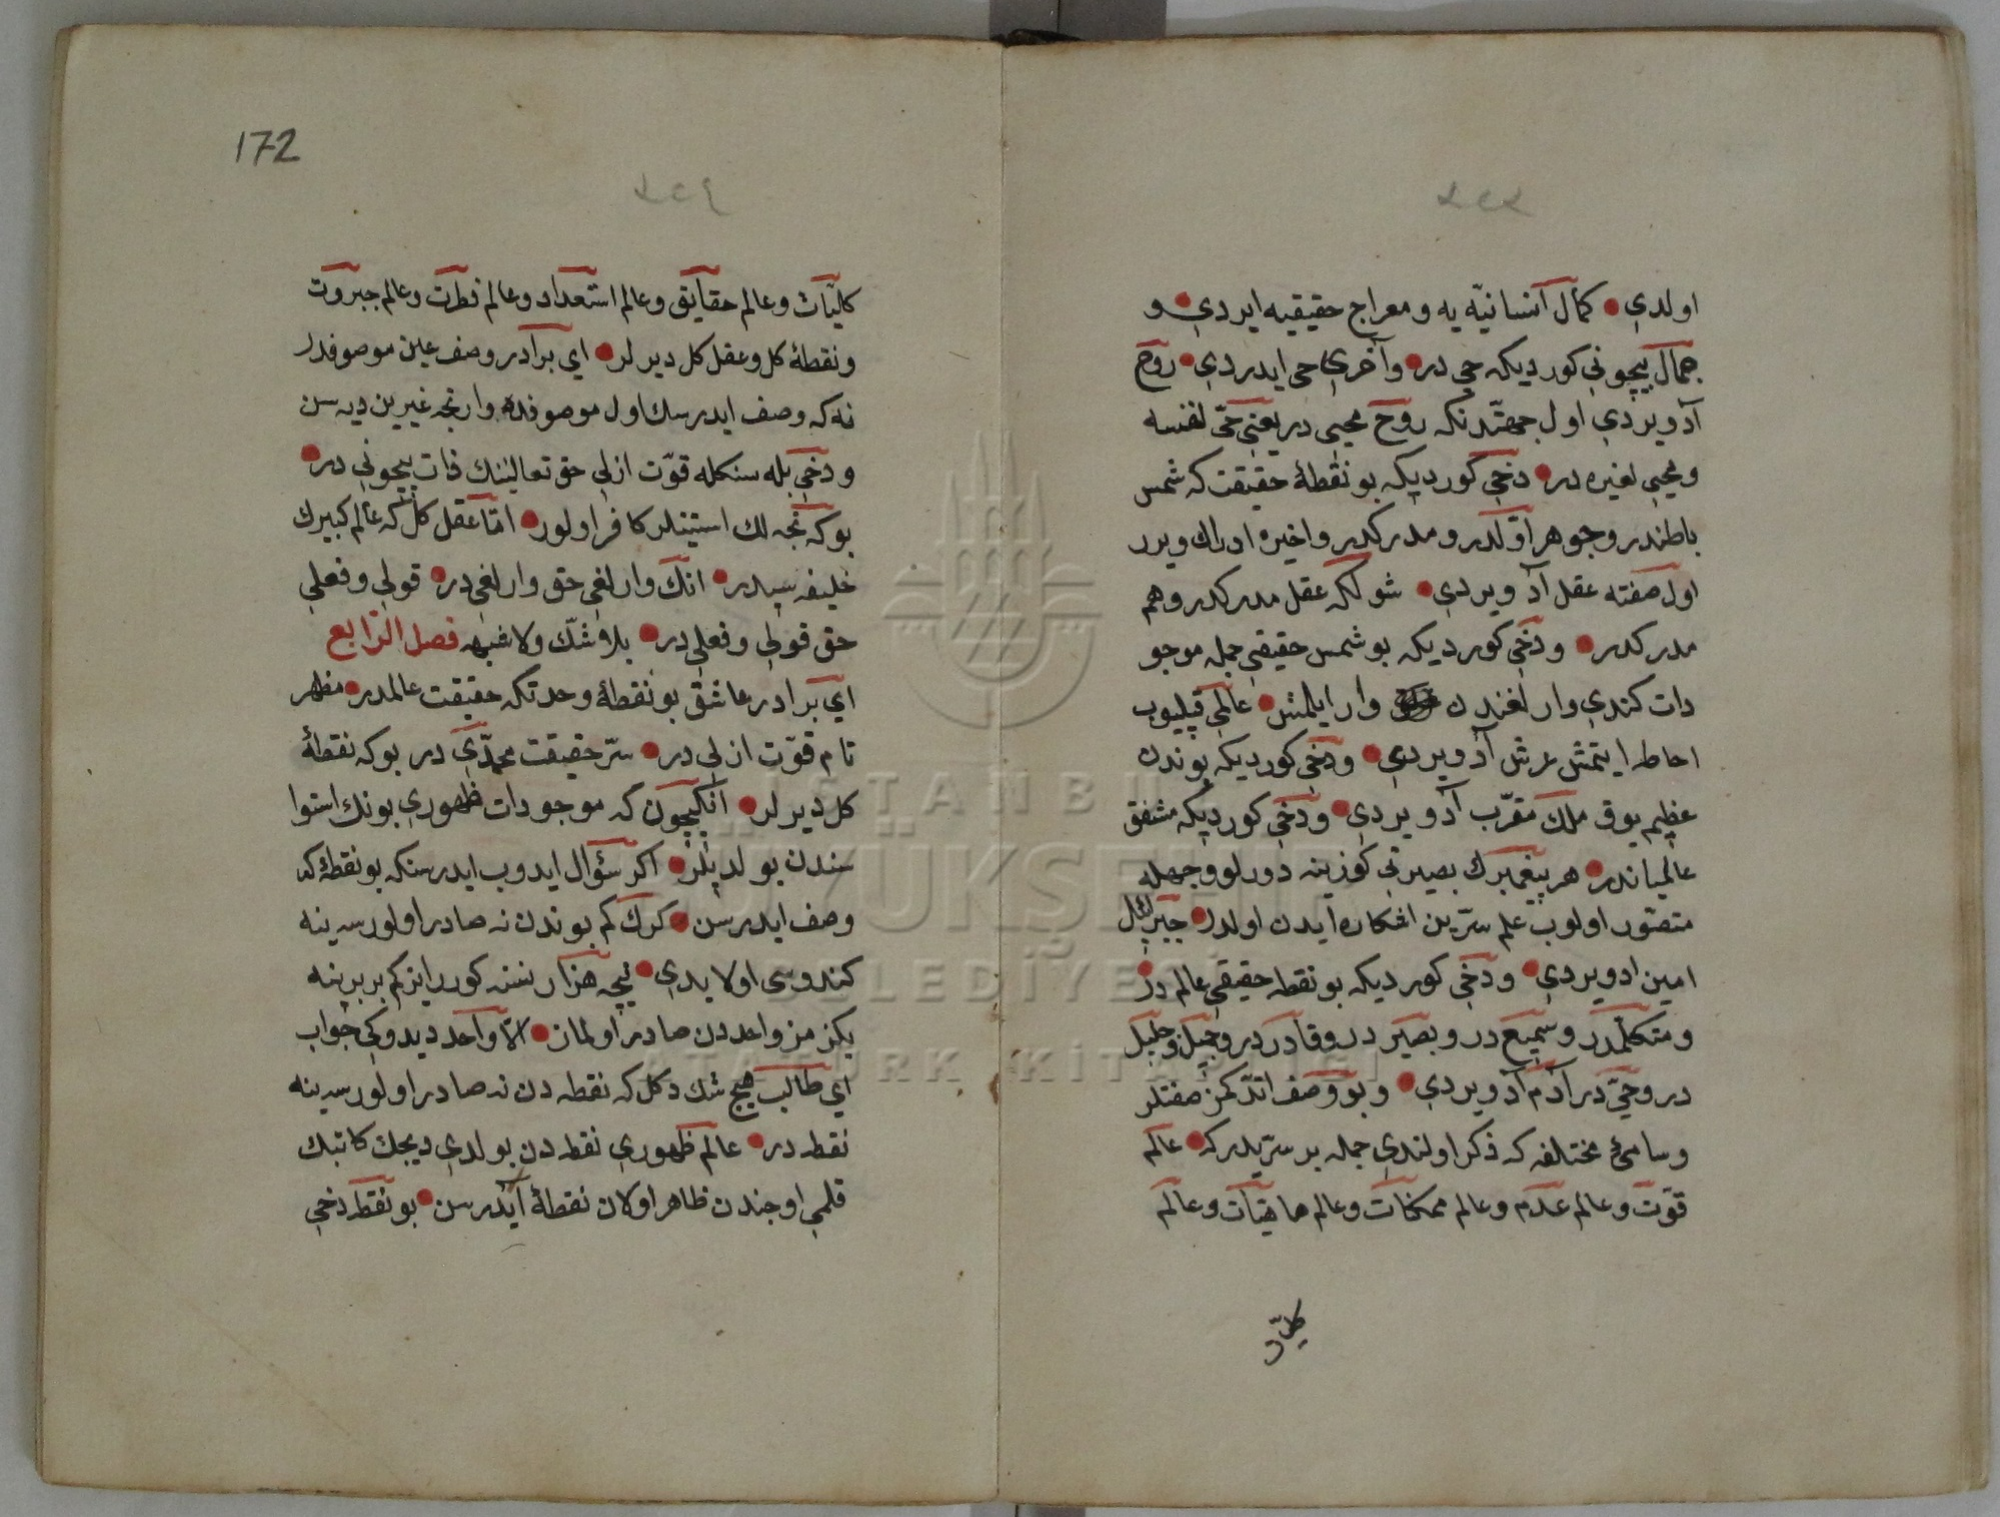 اولدي • كمال انسانيّه يه و معراج حقيقيه ايردي و
جمال بيچوني كورديكه حي در • و آخري حي ايدردي • روح
آد ويردي اول جهتدنكه روح محيي در يعني حيّ لنفسه
و محيي لغيره در • دخي كورديكه بو نقطهٔ حقيقت كه شمس
باطندر و جوهر اوّلدر و مدركدر و اخيره ادراك ويرر
اول صفته عقل آد ويردي • شولكه عقل مدركدر و هم
مدركدر • و دخي كورديكه بو شمس حقيقي جمله موجو
دات كندي وارلغندن وار ايلمش • عالمي قپليوب
احاطه ايتمش عرش آد ويردي • و دخي كورديكه بوندن
عظيم يوق ملك مقرّب آد ويردي • و دخي كورديكه مشفق
عالمياندر • هر پيغمبرك بصيرتي كوزينه دورلو وجهله
متصوّر اولوب علم سرّين اشكاره ايدن اولدر • جبرائيل
امين اد ويردي • و دخي كورديكه بو نقطه حقيقي عالم در
و متكلّمدر و سميع در و بصير در و قادر در و جميل و جليل
در و حيّ در آدم آد ويردي • و بو وصف اتدكمز صفتلر
و سامئ مختلفه كه ذكر اولندي جمله بر سرّيدر كه • عالم
قوّت و عالم عدم و عالم ممكنات و عالم ماهيّات و عالم
كليّا
172
كليّات و عالم حقايق و عالم استعداد و عالم فطرت و عالم جبروت
و نقطهٔ كل و عقل كل ديرلر • اي برادر وصف عين موصوفدر
نه كه وصف ايدرسك اول موصوفده وار نجه غيرين ديه سن
و دخي بله سنكله قوّت ازلي حق تعالينك ذات بيچوني در •
بوكه نجه لك استينلر كافر اولور • امّا عقل كل كه عالم كبيرك
خليفه سيدر • انك وارلغي حق وارلغي در • قولي و فعلي
حق قولي و فعلي در • بلا شك ولا شبهه فصل الرّابع
اي برادر عاشق بو نقطهٔ وحدتكه حقيقت عالمدر • مظهر
تام قوّت ازلي در • سرّ حقيقت محمّدي در بوكه نقطهٔ
كل ديرلر • آنكيچون كه موجودات ظهوري بونك استوا
سندن بولديلر • اكر سؤال ايدوب ايدرسنكه بو نقطهٔ كه
وصف ايدرسن • كرك كم بوندن نه صادر اولورسه ينه
كندوسي اولايدي • نيچه هزار نسنه كوررايزكم بر برينه
بكزمز واحددن صادر اولمان • الّا واحد ديدوكي جواب
اي طالب هيچ شك دكل كه نقطه دن نه صادر اولورسه ينه
نقطه در • عالم ظهوري نقطه دن بولدي ديجك كاتبك
قلمي اوجندن ظاهر اولان نقطهٔ آيدرسن • بو نقطه دخي